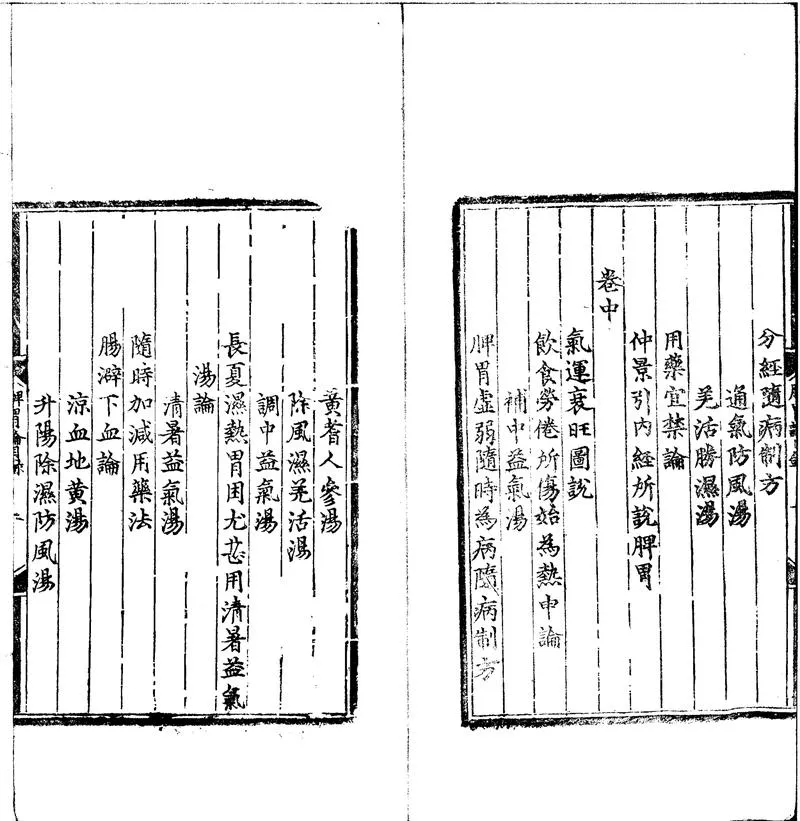 分經隨病制方
通氣防風湯
羌活勝濕湯
用藥宜禁論
仲景引内經所說脾胃
卷中
氣運衰旺圖說
飲食勞倦所傷始為熱中論
補中益氣湯
脾胃虛弱隨時為病隨病制方
黄耆人參湯
除風濕羌活湯
調中益氣湯
長夏濕熱胃困尤甚用清暑益氣
湯論
清暑益氣湯
隨時加減用藥法
腸澼下血論
涼血地黄湯
升陽除濕防風湯
脾胃論目錄